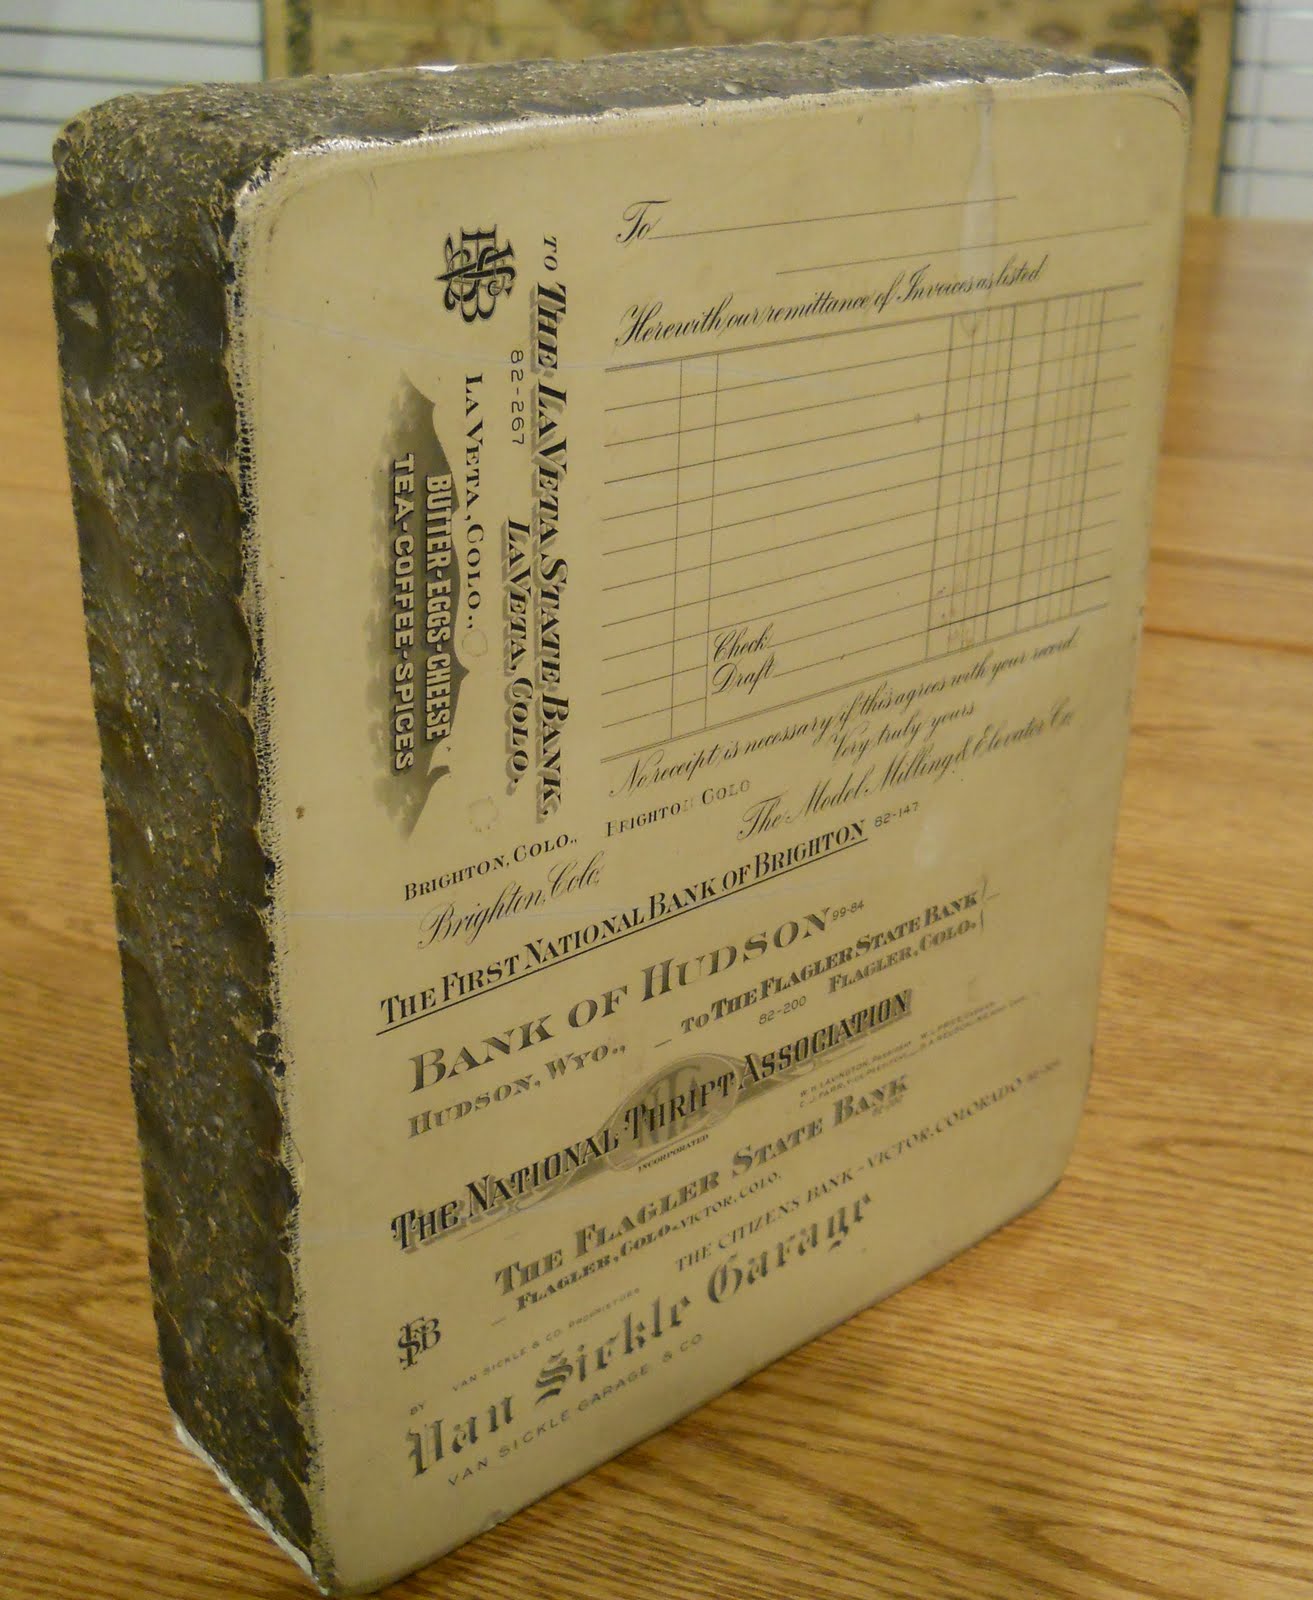 To
Herewith our remittance of Invoices as listed
Check
Draft
No receipt is necessary if this agrees with your record.
Very truly yours
The Model Milling & Elevator Co.
TO THE LA VETA STATE BANK,
LA VETA, COLO.
82-267
LA VETA, COLO.,
BUTTER-EGGS-CHEESE
TEA-COFFEE-SPICES
BRIGHTON, COLO., BRIGHTON COLO
Brighton, Colo.
THE FIRST NATIONAL BANK OF BRIGHTON 82-147
BANK OF HUDSON 99-84
HUDSON, WYO.,
TO THE FLAGLER STATE BANK
82-200 FLAGLER, COLO.
THE NATIONAL THRIFT ASSOCIATION
NTA
INCORPORATED
THE FLAGLER STATE BANK
FLAGLER, COLO. VICTOR, COLO.
THE CITIZENS BANK - VICTOR, COLORADO
FSB
VAN SICKLE & CO. PROPRIETORS
BY
Van Sickle Garage
VAN SICKLE GARAGE & CO